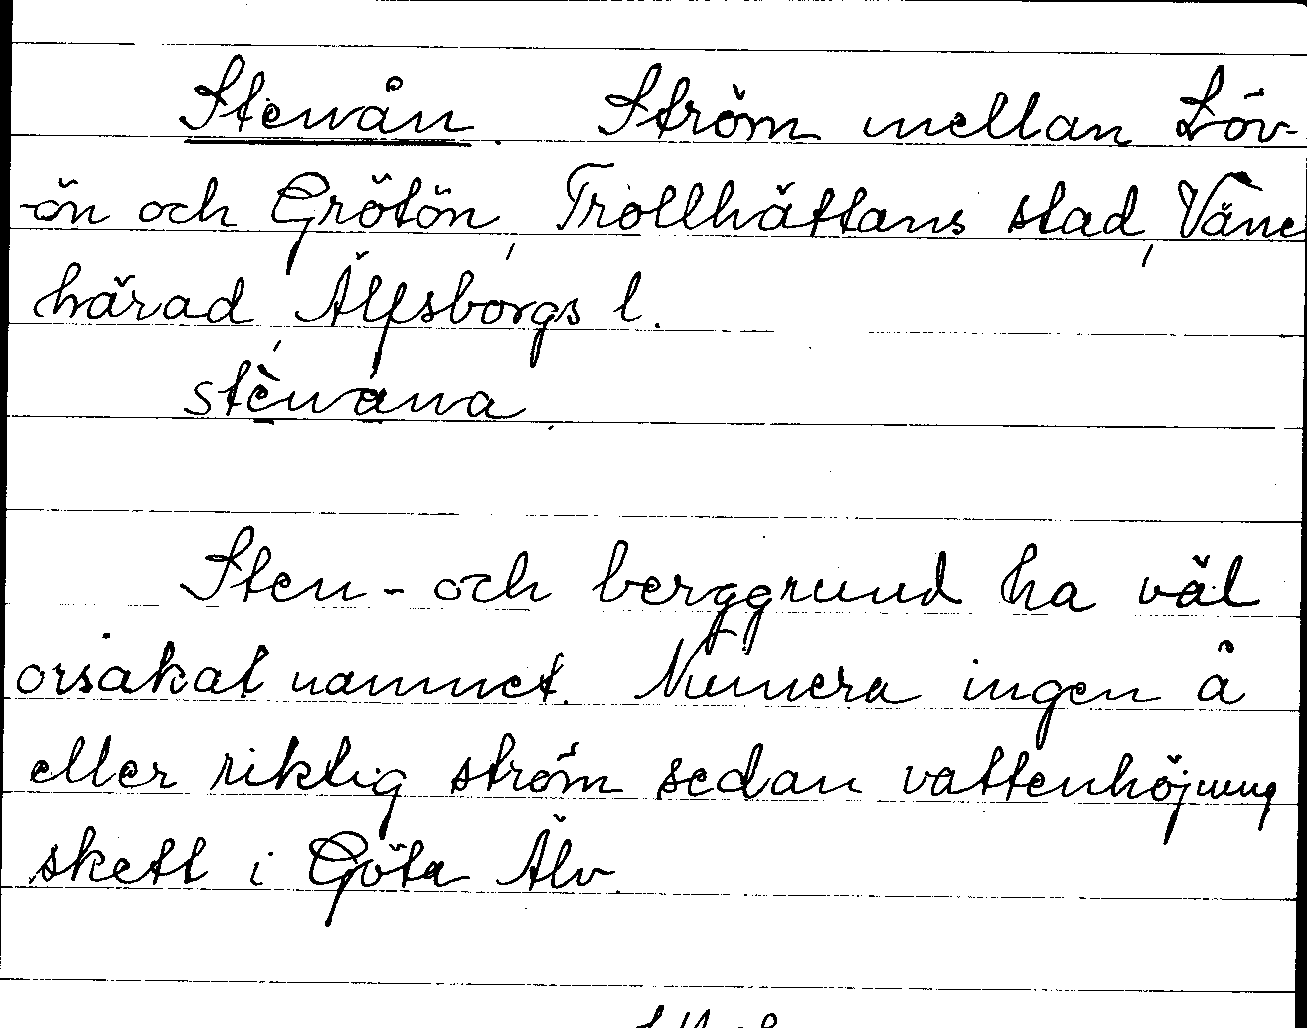 Stenån. Ström mellan Löv-
-ön och Grötön, Trollhättans stad, Väne
härad, Älfsborgs l.
stènána.
Sten- och berggrund ha väl
orsakat namnet. Numera ingen å
eller riktig ström sedan vattenhöjning
skett i Göta Älv.